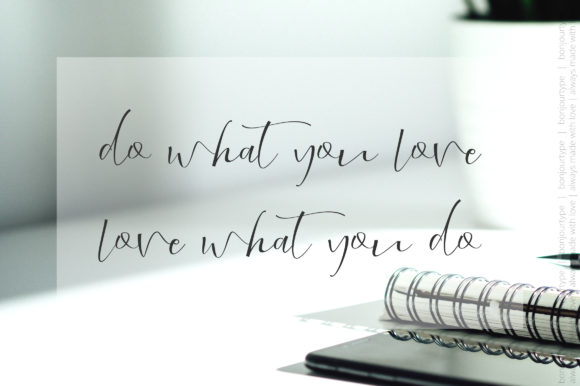 do what you love
love what you do
bonjourtype | bonjourtype | bonjourtype | bonjourtype
always made with love | always made with love | always made with